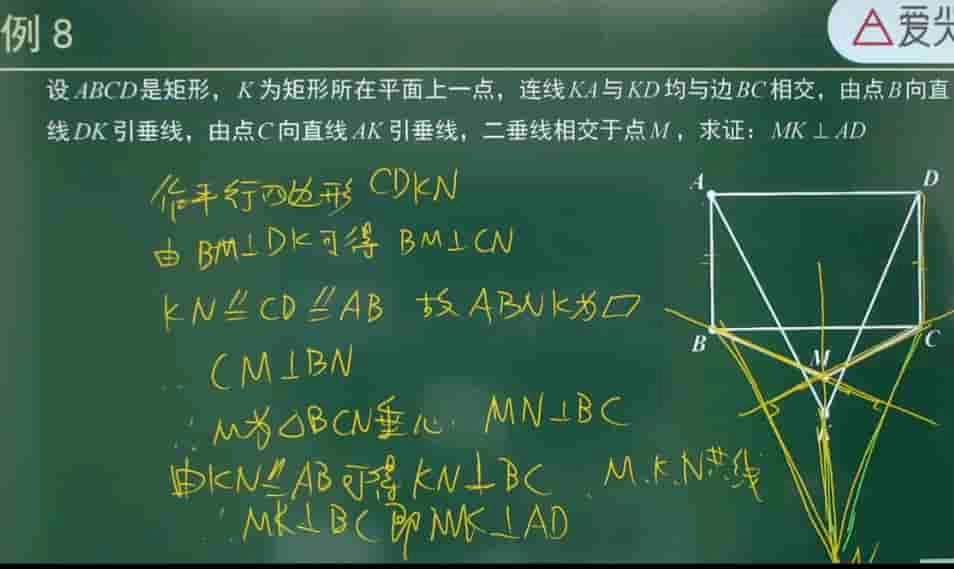 例 8
爱尖
设 ABCD 是矩形，K 为矩形所在平面上一点，连线 KA 与 KD 均与边 BC 相交，由点 B 向直
线 DK 引垂线，由点 C 向直线 AK 引垂线，二垂线相交于点 M ，求证：MK ⊥ AD
作平行四边形 CDKN
由 BM⊥DK 可得 BM⊥CN
KN∥=CD∥=AB 故 ABNK为▱
∴ CM⊥BN
∴ M为△BCN垂心. MN⊥BC
由KN∥=AB可得 KN⊥BC ∴ M.K.N共线
∴ MK⊥BC 即MK⊥AD
A
D
B
C
M
K
N